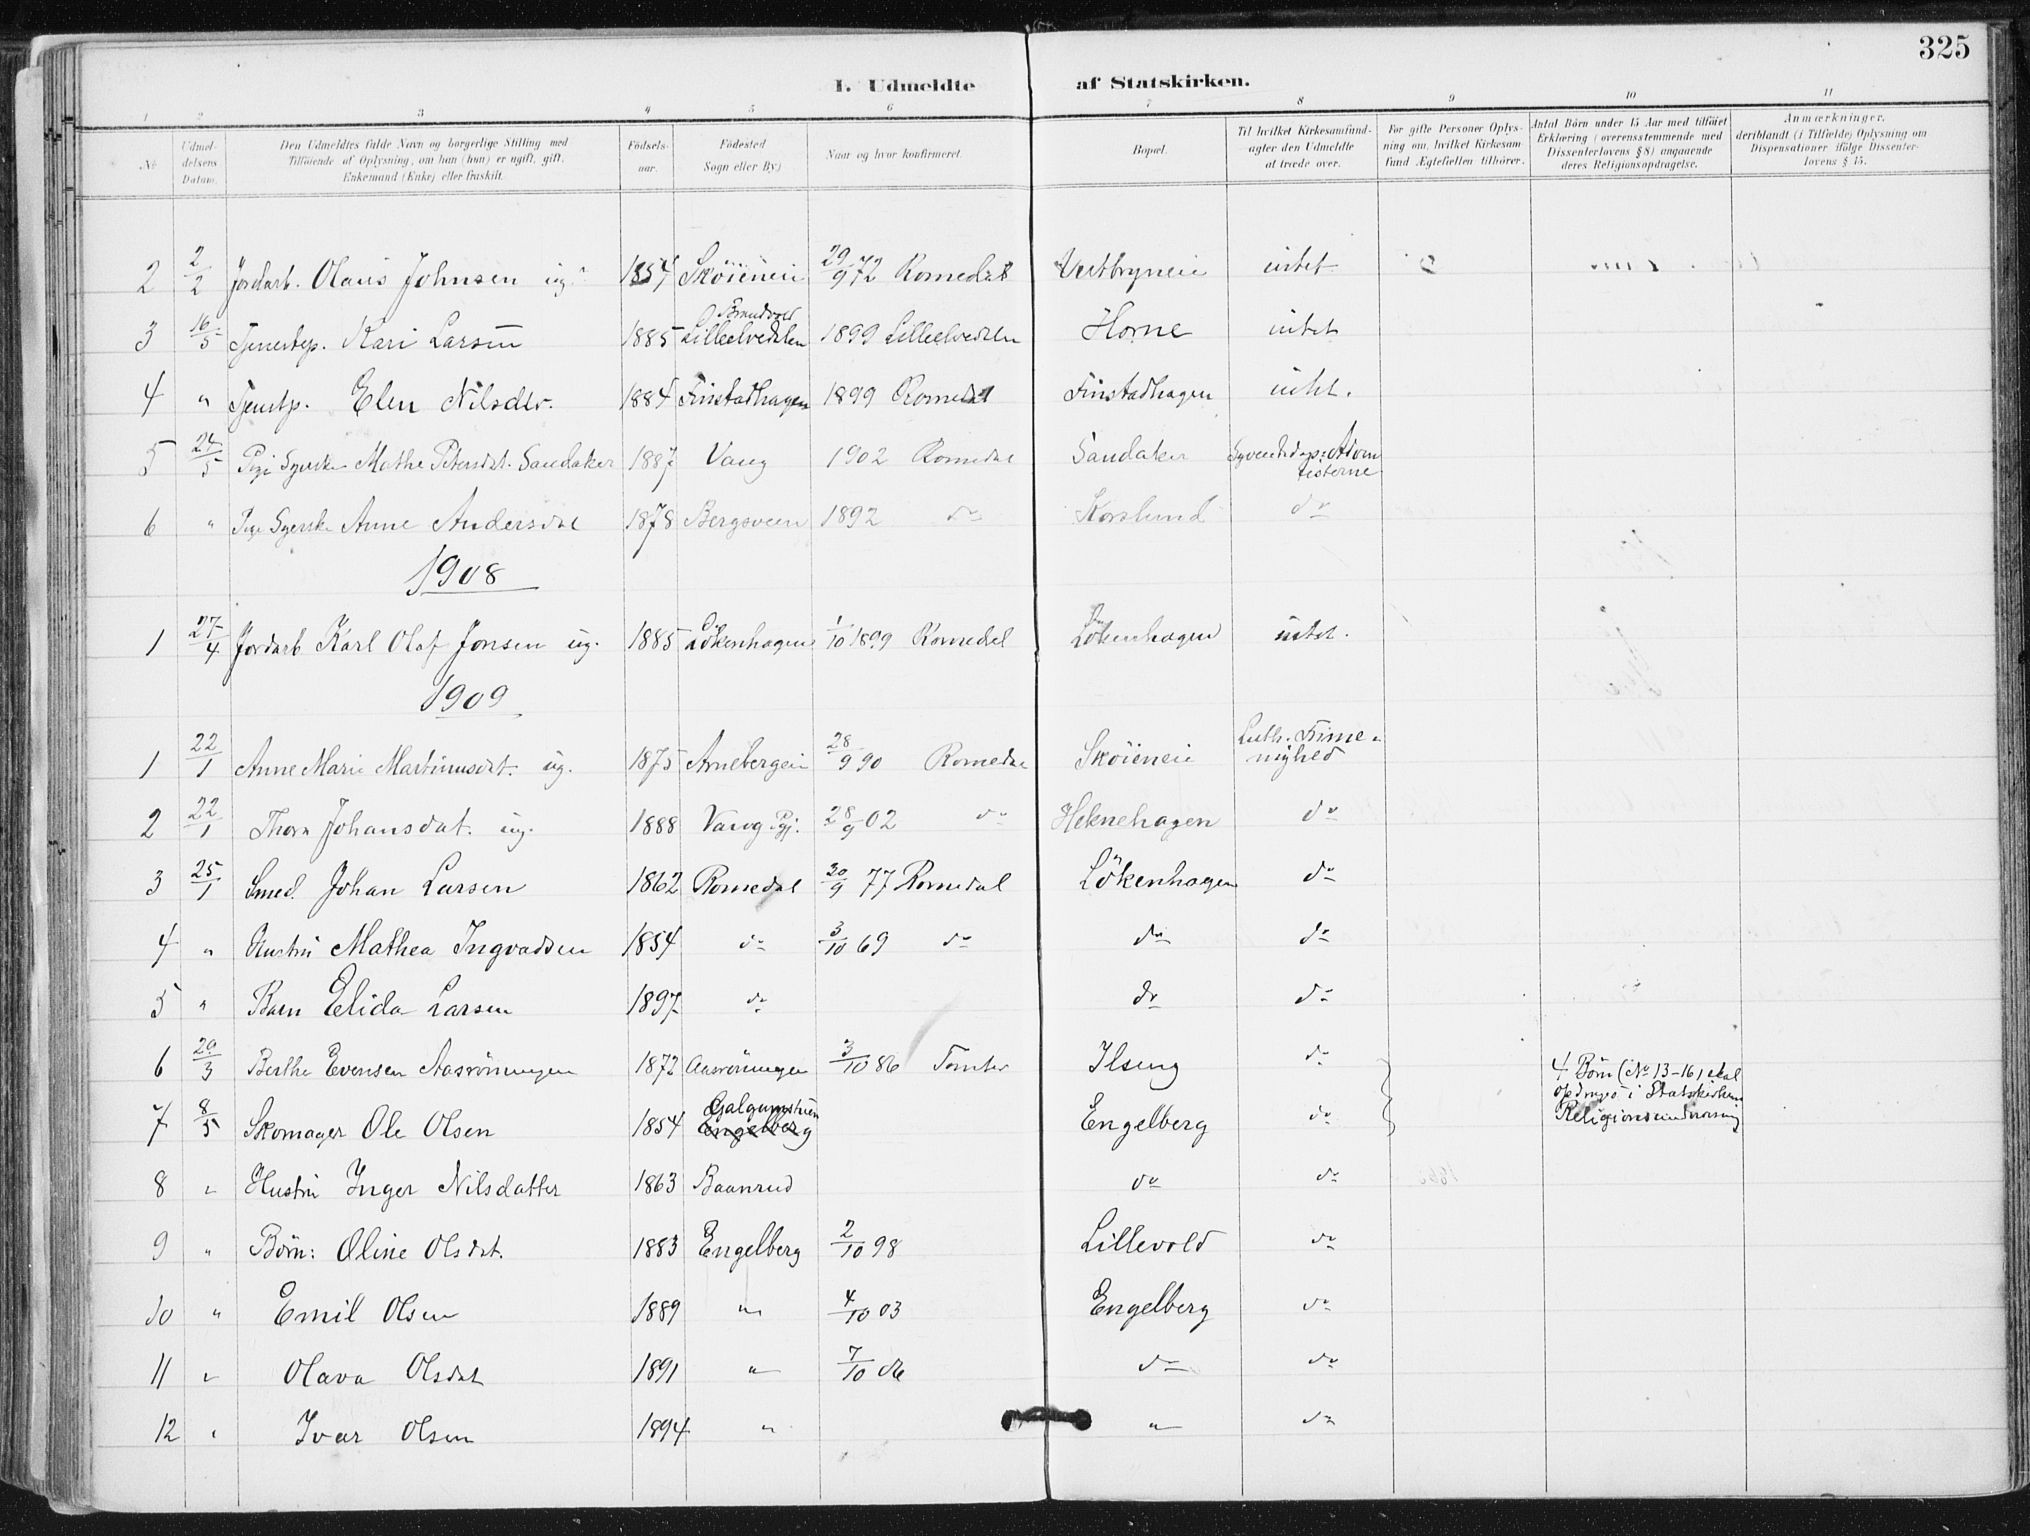 325
I. Udmeldte af Statskirken.
1 2 3 4 5 6 7 8 9 10 11
No
Udmel-
delsens
Datum.
Den Udmeldtes fulde Navn og borgerlige Stilling med
Tilføiende af Oplysning, om han (hun) er ugift, gift,
Enkemand (Enke) eller fraskilt.
Fødsels-
aar.
Fødested
Sogn eller By)
Naar og hvor konfirmeret.
Bopæl.
Til hvilket Kirkesamfund
agter den Udmeldte
at træde over.
For gifte Personer Oplys-
ning om, hvilket Kirkesam-
fund Ægtefællen tilhører.
Antal Børn under 15 Aar med tilføiet
Erklæring (overensstemmende med
Dissenterlovens § 8) angaaende
deres Religionsopdragelse.
Anmærkninger,
deriblandt (i Tilfælde) Oplysning om
Dispensationer ifølge Dissenter-
lovens § 15.
2 2/2 Jordarb. Olaus Johnsen ug. 1854 Sköieneie 29/9 72 Romedal Vestbryneie intet
3 16/5 Tjenestep. Kari Larsen 1885 Lilleelvedalen 1899 Lilleelvedalen Horne intet
4 " Tjenstp. Elen Nilsdtr. 1884 Finstadhagen 1899 Romedal Finstadhagen intet.
5 24/5 Pige Syerske Mathe Petersdat. Sandaker 1887 Vang 1902 Romedal Sandaker Syvendedags: Adven
tisterne
6 " Pige Syerske Anne Andersdat 1878 Bergsveen 1892 do Korslund do
1908
1 27/4 Jordarb Karl Olaf Jonsen ug. 1885 Lökenhagen 1/10 1899 Romedal Lökenhagen intet.
1909
1 22/1 Anne Marie Martinusdat. ug. 1875 Arnebergeie 28/9 90 Romedal Sköieneie Luth. Frime-
nighed
2 22/1 Thora Johansdat. ug. 1888 Vang Pgj. 28/9 02 do Heknehagen do
3 25/1 Smed Johan Larsen 1862 Romedal 30/9 77 Romedal Lökenhagen do
4 " Hustru Mathea Ingvadsen 1854 do 3/10 69 do do do
5 " Barn Elida Larsen 1897 do do do
6 29/3 Berthe Evensen Aasröningen 1872 Aasröningen 3/10 86 Tomter Ilseng do
4 Börn (No 13-16) skal
opdrages i Statskirken
Religionsundervisning
7 8/5 Skomager Ole Olsen 1854 Engelberg Engelberg do
8 " Hustru Inger Nilsdatter 1863 Baanrud do do
9 " Börn: Oline Olsdat. 1883 Engelberg 2/10 98 Lillevold do
10 " Emil Olsen 1889 " 4/10 03 Engelberg do
11 " Olava Olsdat 1891 " 7/10 06 do do
12 " Ivar Olsen 1894 " " do